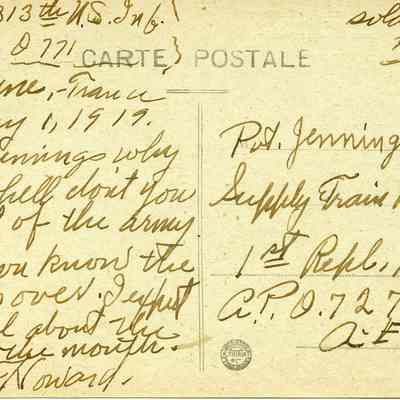 313th U.S. Inf.
O 771
CARTE POSTALE
, France
y 1, 1919.
nnings why
hell don't you
of the army
ou know the
over. I expect
l about the
the month.
Noward.
sol
Pvt. Jenning
Supply Train
1st Repl.
A.P.O. 727
A.E